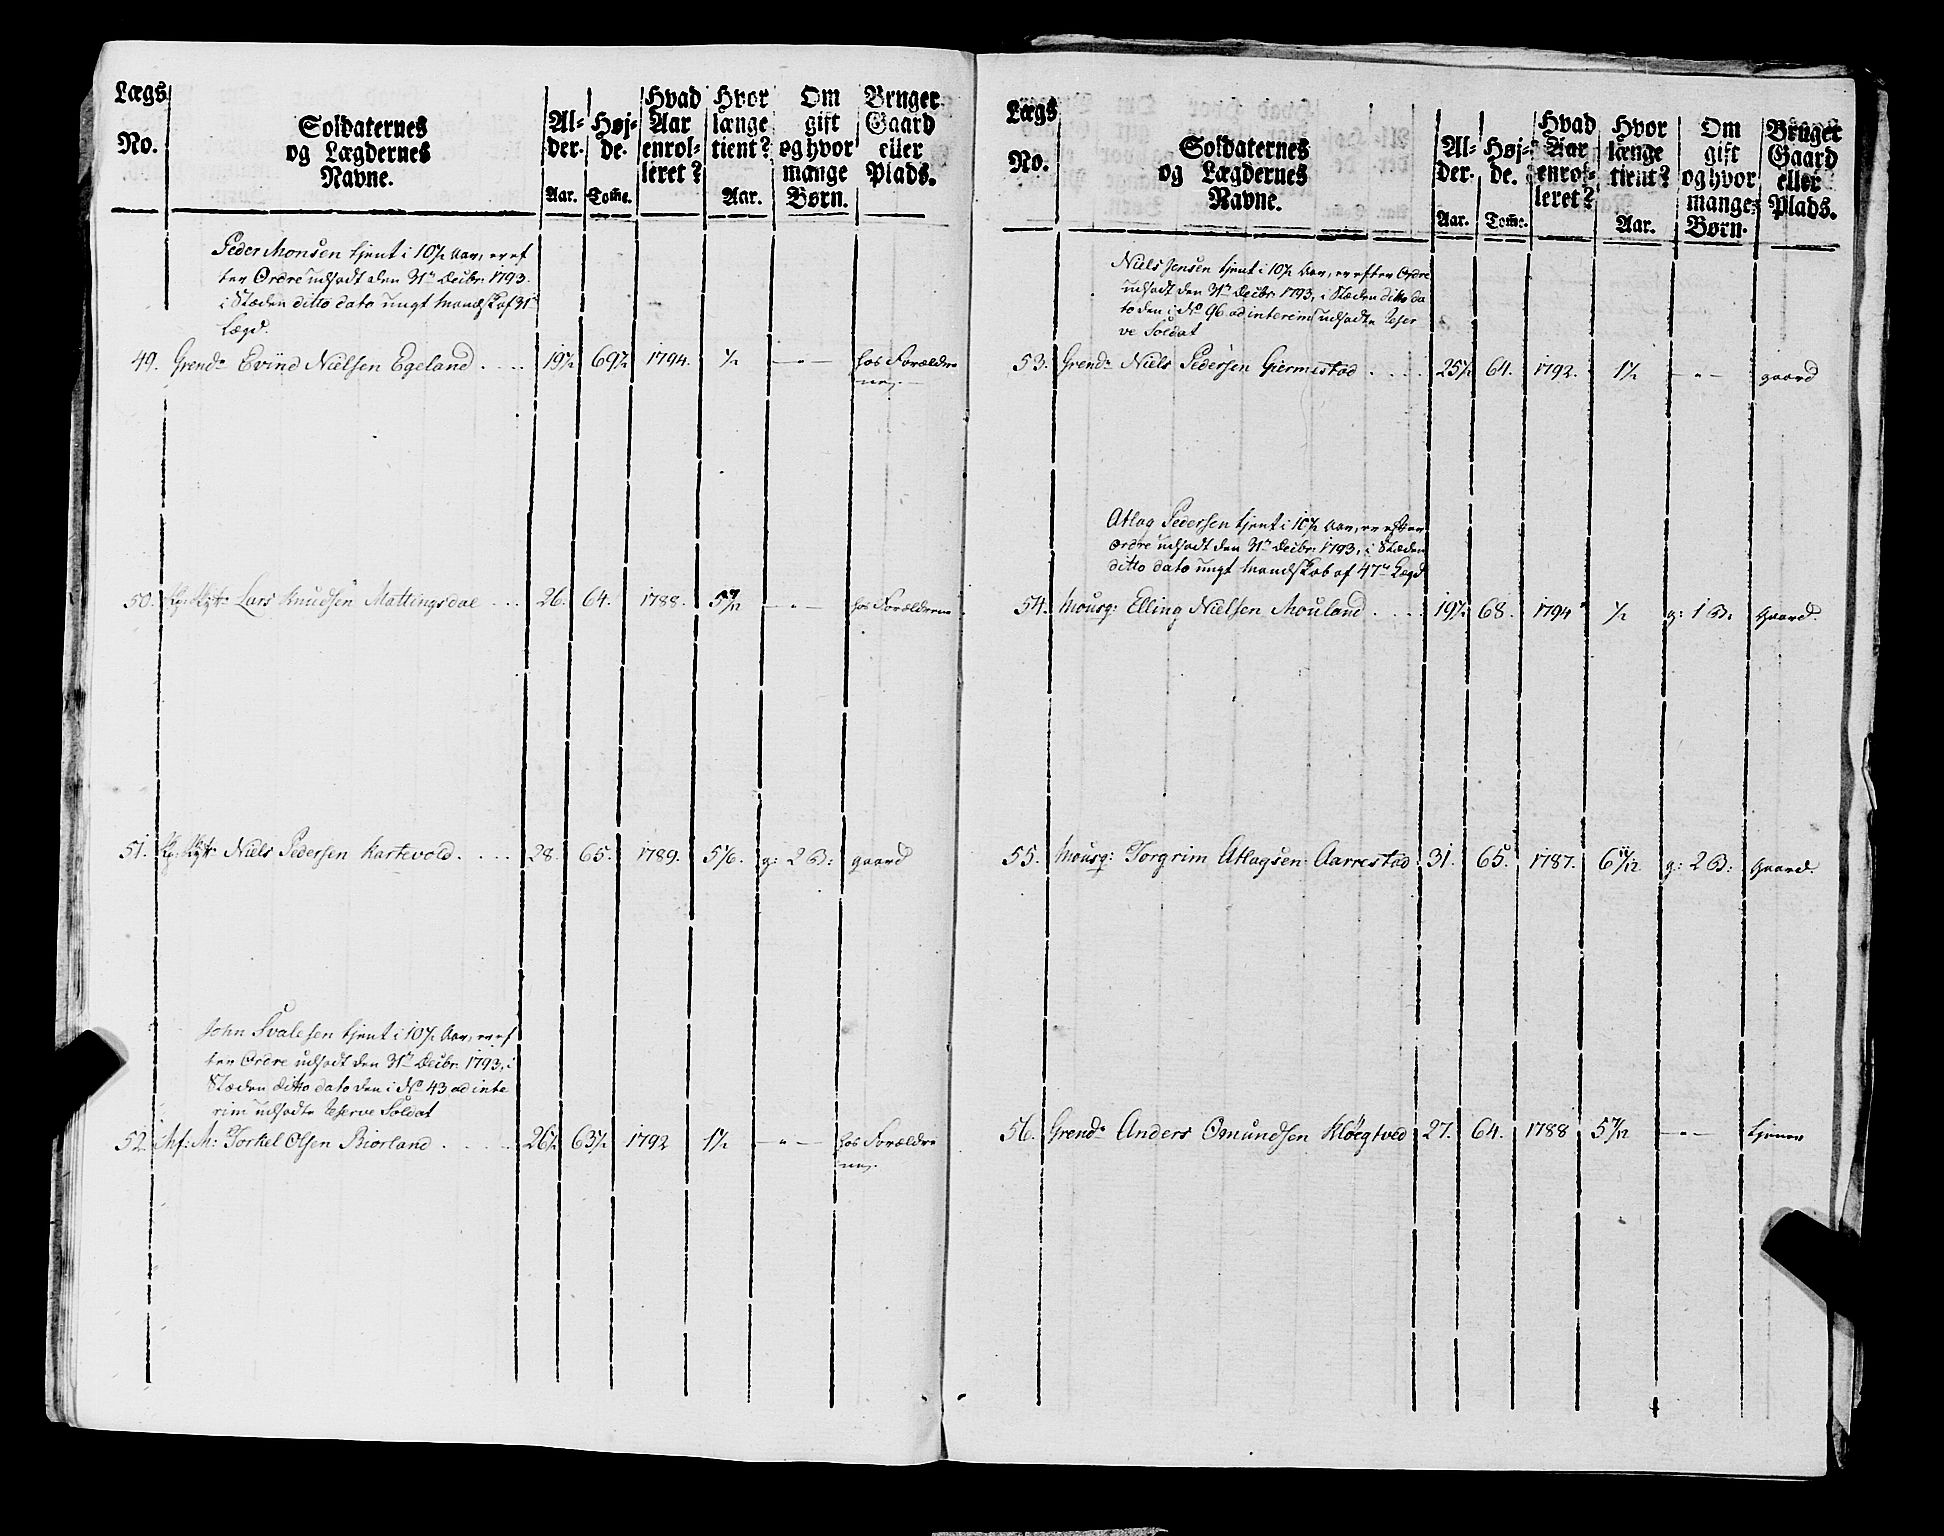 Lægs No.
Soldaternes og Lægdernes Navne.
Al-der. Aar.
Høj-de. Tom̄e.
Hvad Aar enrol-leret?
Hvor længe tient? Aar.
Om gift og hvor mange Børn.
Bruger Gaard eller Plads.
Peder Monsen tjent i 10½ Aar, er ef
ter Ordre udsadt den 31te Decbr: 1793.
i Stæden ditto dato ungt Mandskab af 31te
Lægd.
49. Grendr Evind Nielsen Egeland . . . . 19½ 69½ 1794. ½ — " — hos Forældre
ne.
50. Lars Knudsen Mattingsdal . . . 26. 64. 1788. 5 7/12 — " — hos Forældrene
51. Niels Pedersen Kartevold . . . . 28. 65. 1789. 5 1/6. g: 2 B: gaard
John Svalesen tjent i 10½ Aar, er ef
ter Ordre udsadt den 31te Decbr: 1793, i
Stæden ditto dato den i No 43 ad inte
rim udsadte Reserve Soldat
52. M: Torkel Olsen Biorland . . . . 26½ 63½ 1792 1½ — " — hos Forældre
ne.
Lægs No.
Soldaternes og Lægdernes Navne.
Al-der. Aar.
Høj-de. Tom̄e.
Hvad Aar enrol-leret?
Hvor længe tient? Aar.
Om gift og hvor mange Børn.
Bruger Gaard eller Plads.
Niels Jensen tjent i 10½ Aar, er efter Ordre
udsadt den 31te Decbr: 1793, i Stæden ditto da
to den i No 96 ad interim udsadte Reser
ve Soldat
53. Grendr Niels Pedersen Giermestad . . . . 25½ 64. 1792. 1½ — " — gaard
Atlag Pedersen tjent i 10½ Aar, er efter
Ordre udsadt den 31te Decbr: 1793, i Stæden
ditto dato ungt Mandskab af 47de Lægd
54. Mousq: Elling Nielsen Mouland . . . . 19½ 68. 1794 ½ g: 1 B: Gaard.
55. Mousq: Torgrim Atlagsen Aarrestad 31. 65. 1787. 6 11/12 g: 2 B: Gaard.
56. Grendr Anders Omundsen Kløgtved 27. 64. 1788 5 7/12 — " — tjener